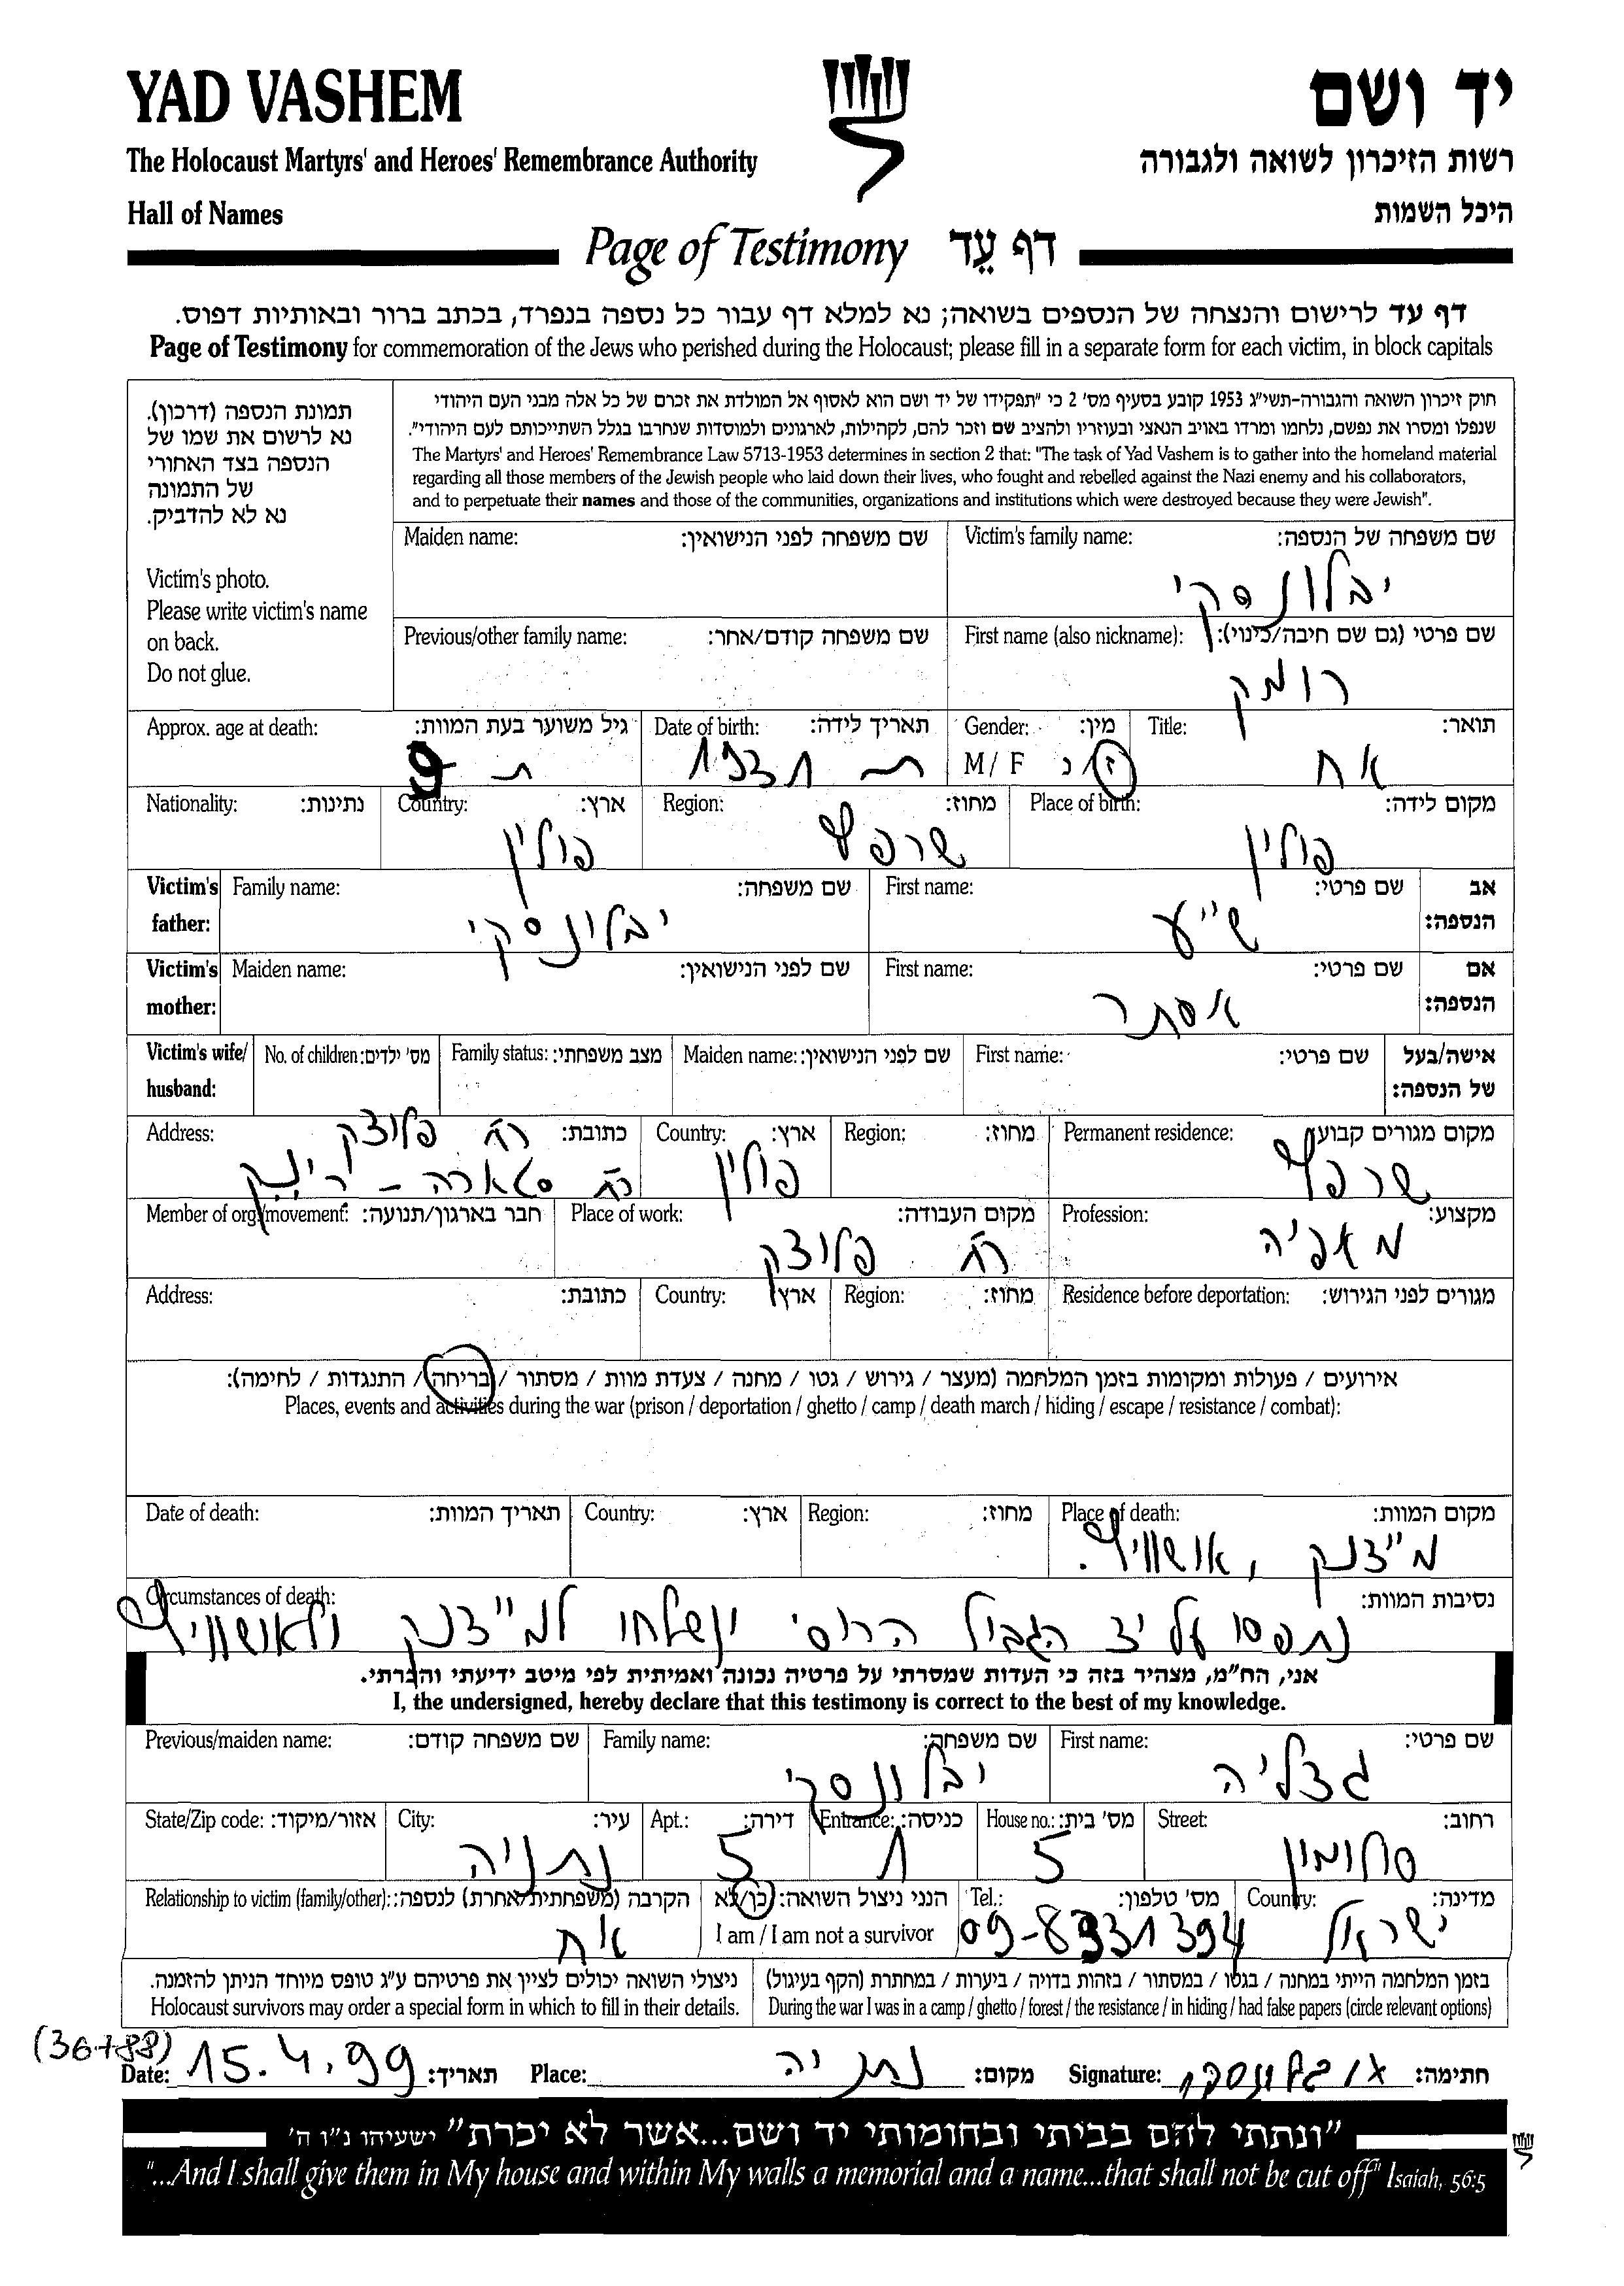 YAD VASHEM
יד ושם
The Holocaust Martyrs' and Heroes' Remembrance Authority
רשות הזיכרון לשואה ולגבורה
Hall of Names
היכל השמות
Page of Testimony דף עֵד
דף עד לרישום והנצחה של הנספים בשואה; נא למלא דף עבור כל נספה בנפרד, בכתב ברור ובאותיות דפוס.
Page of Testimony for commemoration of the Jews who perished during the Holocaust; please fill in a separate form for each victim, in block capitals
תמונת הנספה (דרכון).
נא לרשום את שמו של
הנספה בצד האחורי
של התמונה
נא לא להדביק.
Victim's photo.
Please write victim's name
on back.
Do not glue.
חוק זיכרון השואה והגבורה-תשי"ג 1953 קובע בסעיף מס' 2 כי "תפקידו של יד ושם הוא לאסוף אל המולדת את זכרם של כל אלה מבני העם היהודי
שנפלו ומסרו את נפשם, נלחמו ומרדו באויב הנאצי ובעוזריו ולהציב שם וזכר להם, לקהילות, לארגונים ולמוסדות שנחרבו בגלל השתייכותם לעם היהודי".
The Martyrs' and Heroes' Remembrance Law 5713-1953 determines in section 2 that: "The task of Yad Vashem is to gather into the homeland material
regarding all those members of the Jewish people who laid down their lives, who fought and rebelled against the Nazi enemy and his collaborators,
and to perpetuate their names and those of the communities, organizations and institutions which were destroyed because they were Jewish".
Maiden name: שם משפחה לפני הנישואין: Victim's family name: שם משפחה של הנספה:
יבלונסקי
Previous/other family name: שם משפחה קודם/אחר: First name (also nickname): שם פרטי (גם שם חיבה/כינוי):
רומק
Approx. age at death: גיל משוער בעת המוות: Date of birth: תאריך לידה: Gender: מין: Title: תואר:
9 1931 M / F ז/נ אח
Nationality: נתינות: Country: ארץ: Region: מחוז: Place of birth: מקום לידה:
פולין שרפץ פולין
Victim's father: Family name: שם משפחה: First name: שם פרטי: אב הנספה:
יבלונסקי ש"ע
Victim's mother: Maiden name: שם לפני הנישואין: First name: שם פרטי: אם הנספה:
אסתר
Victim's wife/ husband: No. of children: מס' ילדים: Family status: מצב משפחתי: Maiden name: שם לפני הנישואין: First name: שם פרטי: אישה/בעל של הנספה:
Address: כתובת: Country: ארץ: Region: מחוז: Permanent residence: מקום מגורים קבוע
רח פלוצק
רח סטארה - רינק פולין שרפץ
Member of org./movement: חבר בארגון/תנועה: Place of work: מקום העבודה: Profession: מקצוע:
רח פלוצק מאפיה
Address: כתובת: Country: ארץ: Region: מחוז: Residence before deportation: מגורים לפני הגירוש:
אירועים / פעולות ומקומות בזמן המלחמה (מעצר / גירוש / גטו / מחנה / צעדת מוות / מסתור / בריחה / התנגדות / לחימה):
Places, events and activities during the war (prison / deportation / ghetto / camp / death march / hiding / escape / resistance / combat):
Date of death: תאריך המוות: Country: ארץ: Region: מחוז: Place of death: מקום המוות:
מיידנק, אושוויץ.
Circumstances of death: נסיבות המוות:
נתפסו על יד הגבול הרוסי ונשלחו למיידנק ולאושוויץ
אני, הח"מ, מצהיר בזה כי העדות שמסרתי על פרטיה נכונה ואמיתית לפי מיטב ידיעתי והכרתי.
I, the undersigned, hereby declare that this testimony is correct to the best of my knowledge.
Previous/maiden name: שם משפחה קודם: Family name: שם משפחה: First name: שם פרטי:
יבלונסקי גצליה
State/Zip code: אזור/מיקוד: City: עיר: Apt.: דירה: Entrance: כניסה: House no.: מס' בית: Street: רחוב:
נתניה 5 1 5
Relationship to victim (family/other): הקרבה (משפחתית/אחרת) לנספה: הנני ניצול השואה: כן/לא Tel.: מס' טלפון: Country: מדינה:
אח I am / I am not a survivor 09-8331394 ישראל
ניצולי השואה יכולים לציין את פרטיהם ע"ג טופס מיוחד הניתן להזמנה. בזמן המלחמה הייתי במחנה / בגטו / במסתור / בזהות בדויה / ביערות / במחתרת (הקף בעיגול)
Holocaust survivors may order a special form in which to fill in their details. During the war I was in a camp / ghetto / forest / the resistance / in hiding / had false papers (circle relevant options)
(36788)
Date: 15.4.99 תאריך: Place: נתניה מקום: Signature: חתימה:
"ונתתי להם בביתי ובחומותי יד ושם...אשר לא יכרת" ישעיהו נ"ו ה'
"...And I shall give them in My house and within My walls a memorial and a name...that shall not be cut off" Isaiah, 56:5